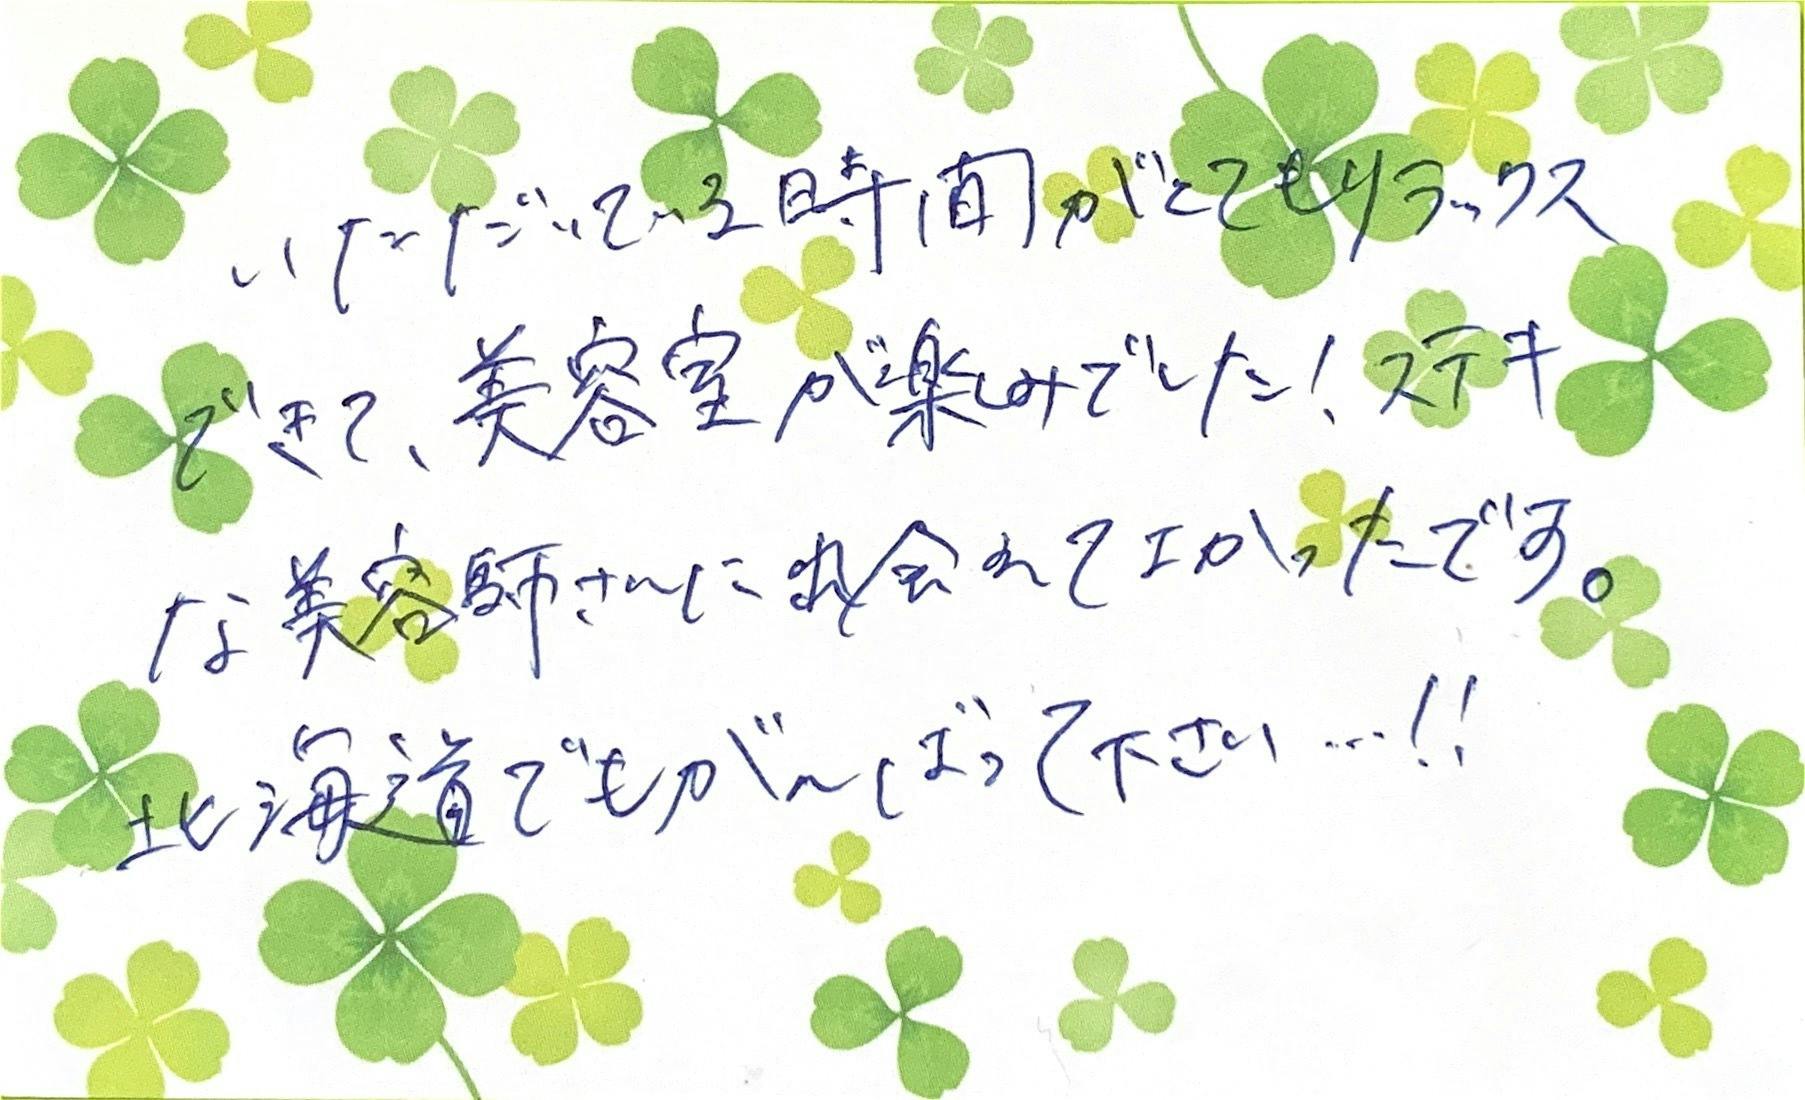 いただいている時間がとてもリラックス
できて、美容室が楽しみでした！ステキ
な美容師さんに出会えてよかったです。
北海道でもがんばって下さい…！！